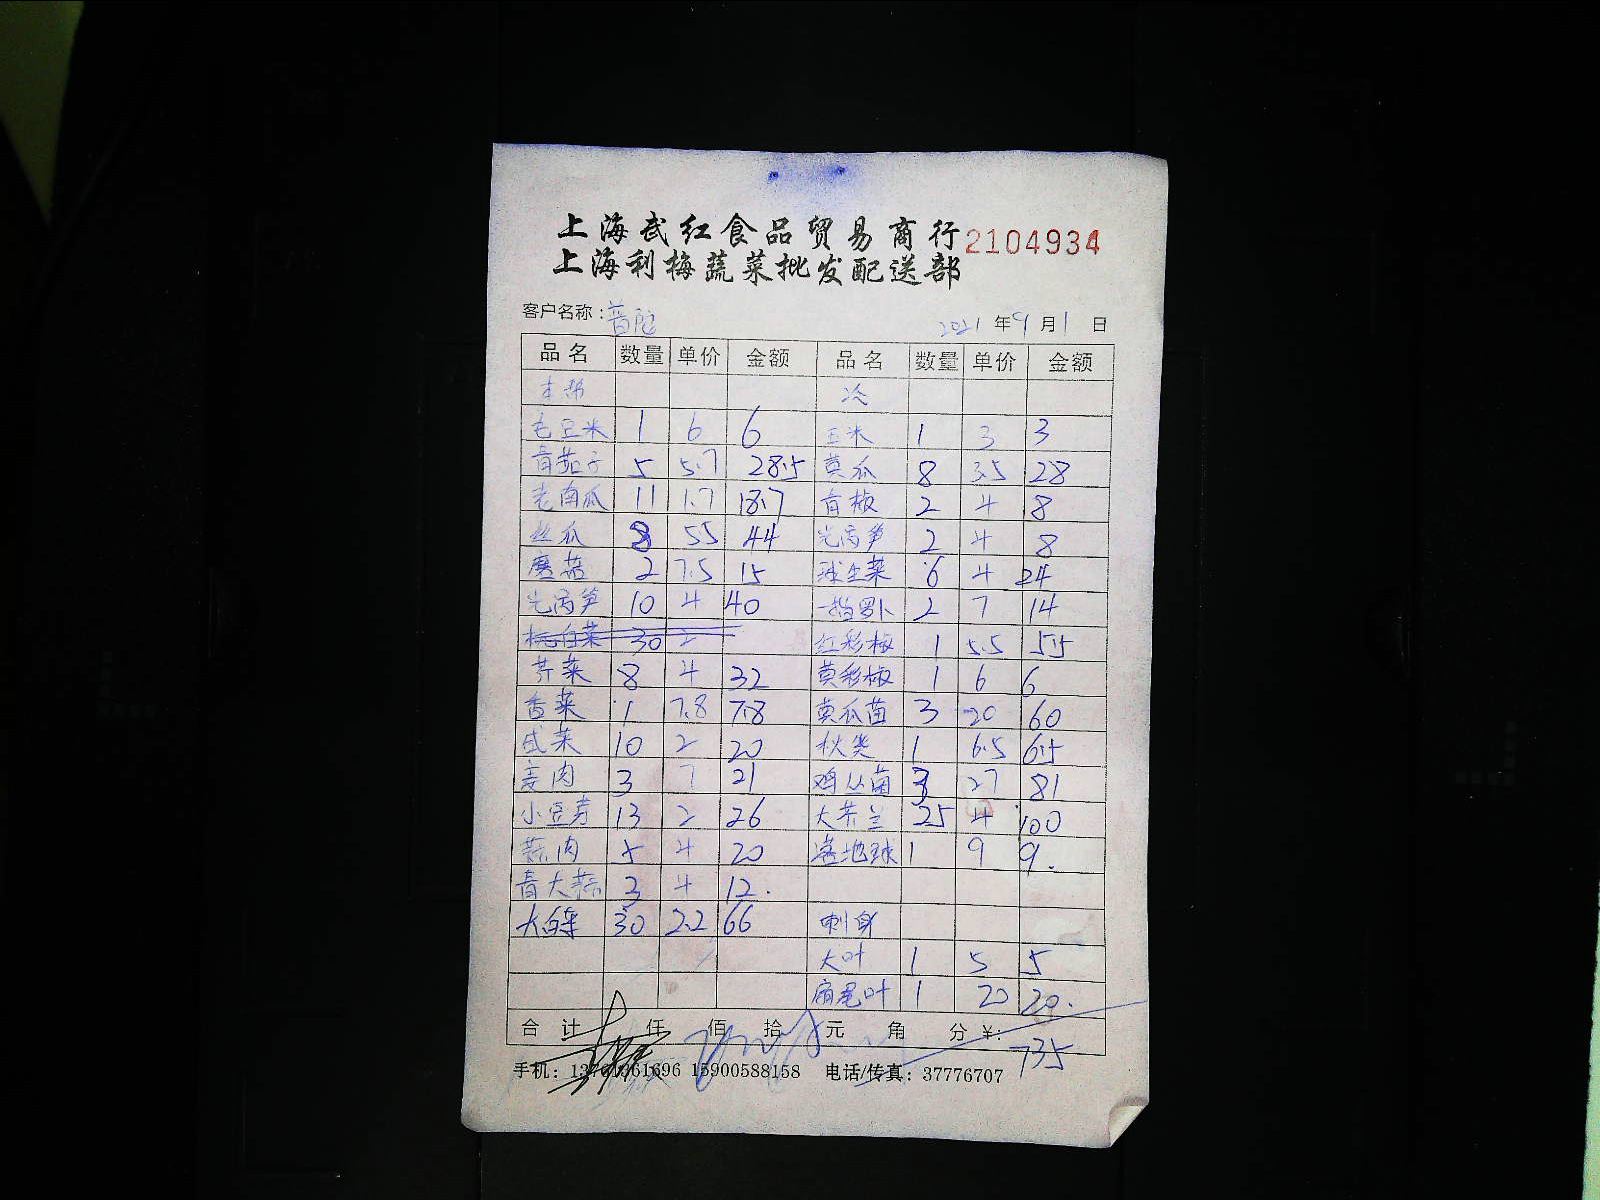 上海武红食品贸易商行 2104934
上海利梅蔬菜批发配送部
客户名称：普陀 2021年9月1日
品名 数量 单价 金额 品名 数量 单价 金额
本帮 次
毛豆米 1 6 6 玉米 1 3 3
青茄子 5 5.7 28.5 黄瓜 8 3.5 28
老南瓜 11 1.7 18.7 青椒 2 4 8
丝瓜 8 55 44 光莴笋 2 4 8
磨菇 2 7.5 15 球生菜 6 4 24
光莴笋 10 4 40 萝卜 2 7 14
白菜 30 2 红彩椒 1 5.5 5.5
芹菜 8 4 32 黄彩椒 1 6 6
香菜 1 7.8 7.8 黄瓜苗 3 20 60
咸菜 10 2 20 秋葵 1 6.5 6.5
姜肉 3 7 21 鸡丛菌 3 27 81
小豆芽 13 2 26 大芥兰 25 4 100
蒜肉 5 4 20 地球 1 9 9.
青大蒜 3 4 12.
大白菜 30 2.2 66 刺身
大叶 1 5 5
扇尾叶 1 20 20.
合计 仟 佰 拾 元 角 分 ¥: 735
手机： 15900588158 电话/传真：37776707